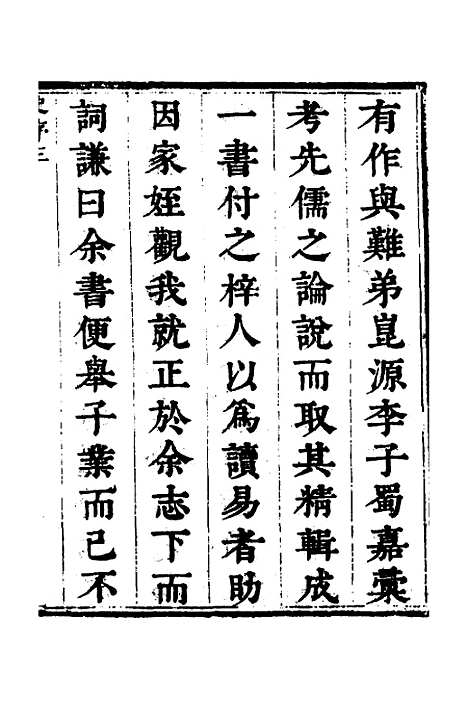 有作與難弟崑源李子蜀嘉彙
考先儒之論說而取其精輯成
一書付之梓人以為讀易者助
因家姪觀我就正於余志下而
詞謙曰余書便舉子業而已不
序三